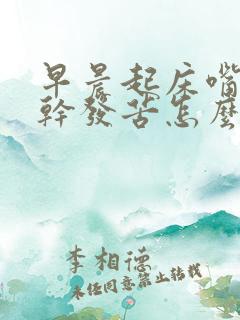 早晨起床嘴
幹發苦怎麼
李相德
未经同意禁止转载